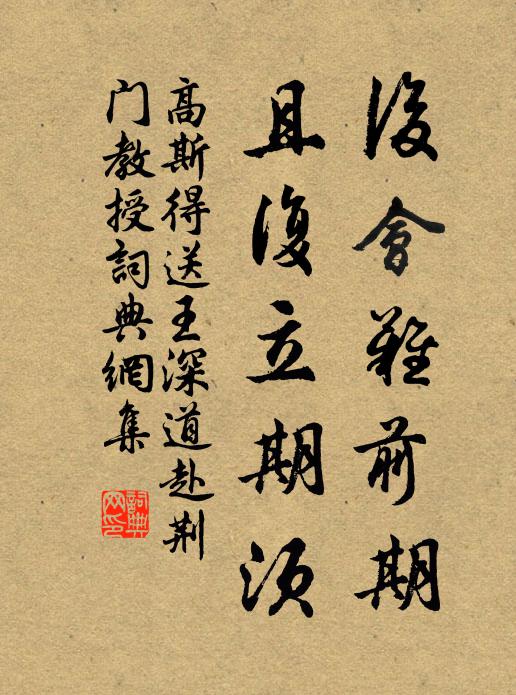 後會難前期
且復立期須
高斯得送王深道赴荆
门教授詞典網集
詞典網印